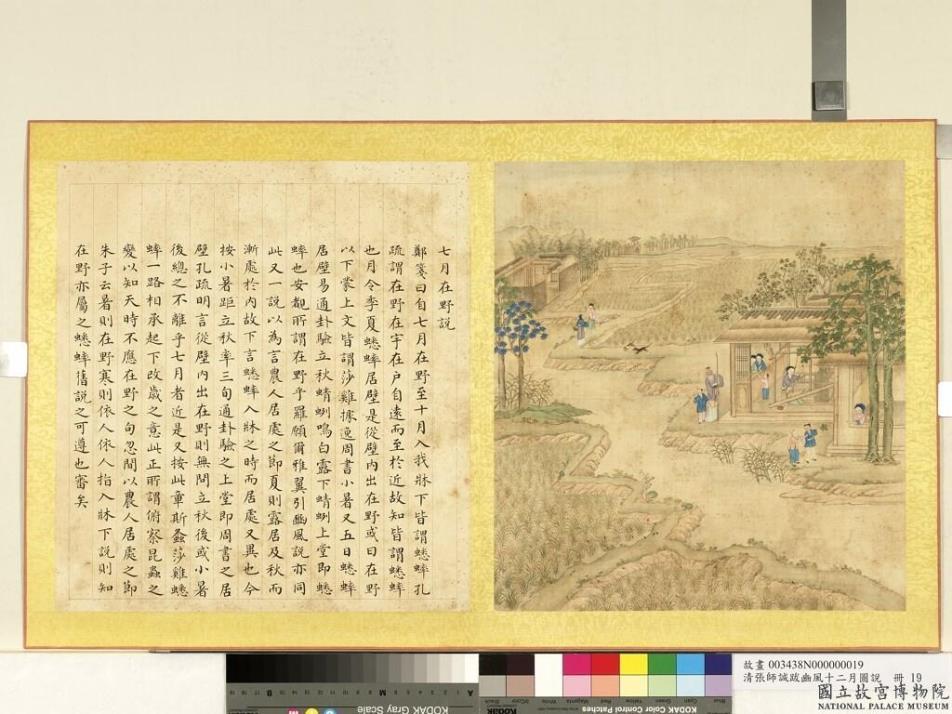 七月在野說
鄭箋曰自七月在野至十月入我牀下皆謂蟋蟀孔
疏謂在野在宇在户自遠而至於近故知皆謂蟋蟀
也月令季夏蟋蟀居壁是從壁内出在野或曰在野
以下蒙上文皆謂莎雞據逸周書小暑又五日蟋蟀
居壁易通卦驗立秋蜻蛚鳴白露下蜻蛚上堂即蟋
蟀也安覩所謂在野乎羅願爾雅翼引豳風說亦同
此又一說以為言農人居處之節夏則露居及秋而
漸處於内故下言蟋蟀入牀之時而居處又異也今
按小暑距立秋率三旬通卦驗之上堂即周書之居
壁孔疏明言從壁内出在野則無問立秋後或小暑
後總之不離乎七月者近是又按此章斯螽莎雞蟋
蟀一路相承起下改歲之意此正所謂俯察昆蟲之
變以知天時不應在野之句忽間以農人居處之節
朱子云暑則在野寒則依人依人指入牀下說則知
在野亦屬之蟋蟀舊說之可遵也審矣
故畫 003438N000000019
清張師誠跋豳風十二月圖說 冊 19
國立故宮博物院
NATIONAL PALACE MUSEUM
KODAK Gray Scale
KODAK Color Control Patches